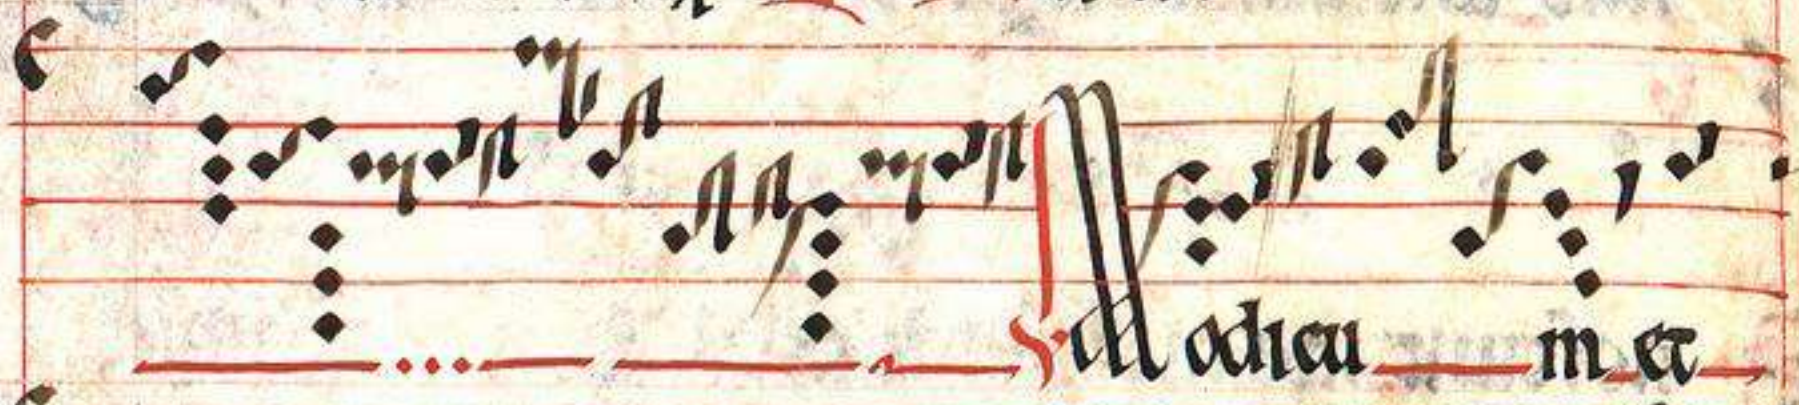 Modicu m et